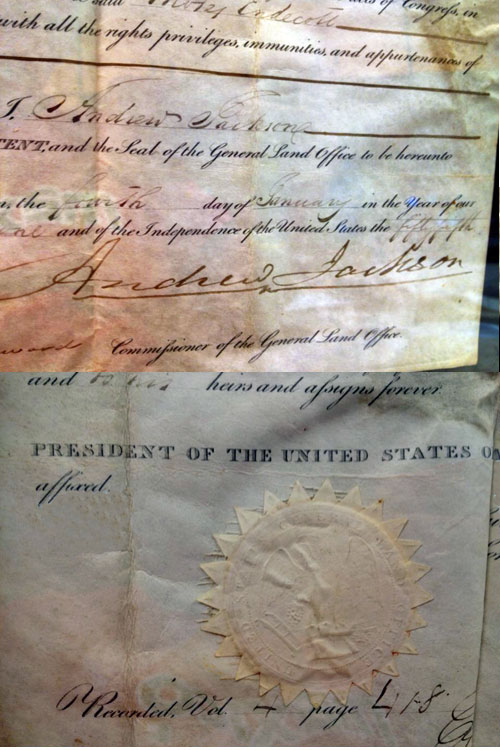 said Moses Endecott Acts of Congress, in
with all the rights privileges, immunities, and appurtenances of
I, Andrew Jackson
TENT, and the Seal of the General Land Office to be hereunto
the fourth day of January in the Year of our
and of the Independence of the United States the fifty fifth
Andrew Jackson
Commissioner of the General Land Office.
and to his heirs and assigns forever
PRESIDENT OF THE UNITED STATES O
affixed.
Recorded, Vol. 4 page 418